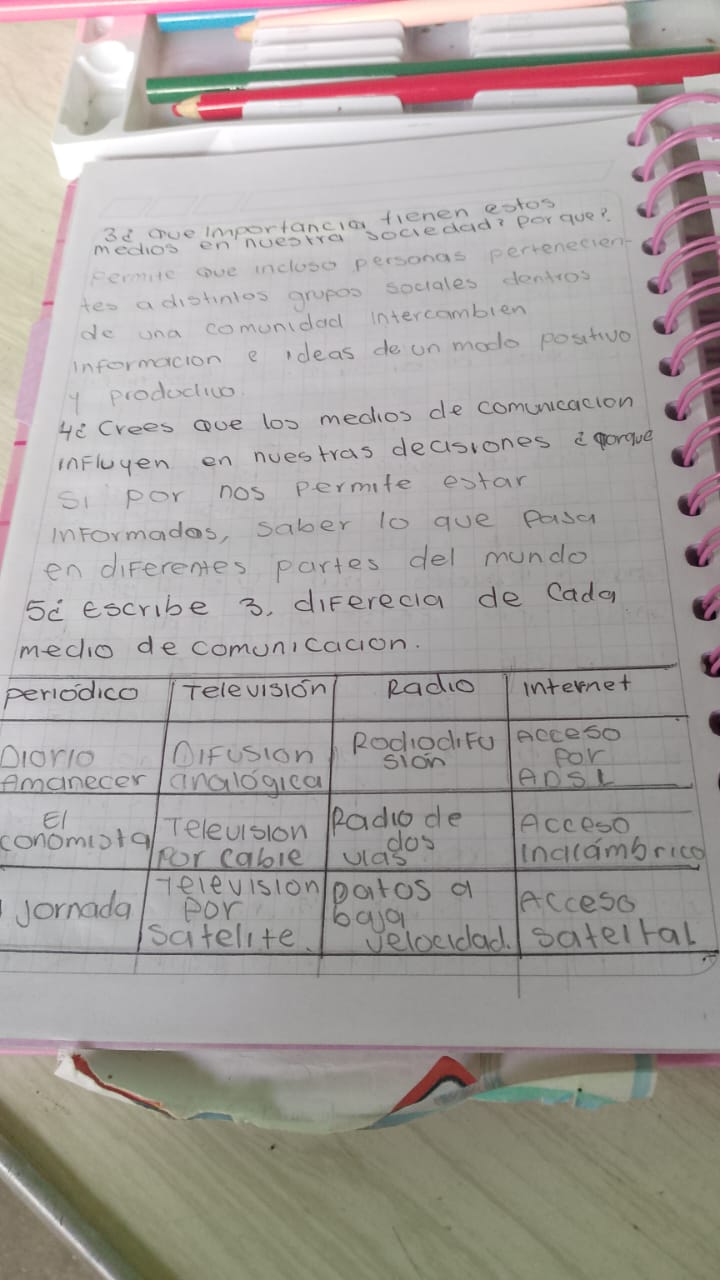 3¿ Que importancia tienen estos
medios en nuestra sociedad? Por que?.
Permite que incluso personas pertenecien-
tes a distintos grupos sociales dentros
de una comunidad intercambien
informacion e ideas de un modo positivo
y productivo.
4¿ Crees que los medios de comunicacion
influyen en nuestras decisiones ¿ porque
Si por nos permite estar
informados, saber lo que pasa
en diferentes partes del mundo
5¿ Escribe 3. diferecia de Cada
medio de comunicacion.
periódico Televisión Radio internet
Diario Difusion Radiodifu Acceso
Amanecer analógica sión por
ADSL
El Television Radio de Acceso
conomista por cable dos inalámbrico
vias
Jornada Television Datos a Acceso
por baja satelital
satelite. velocidad.